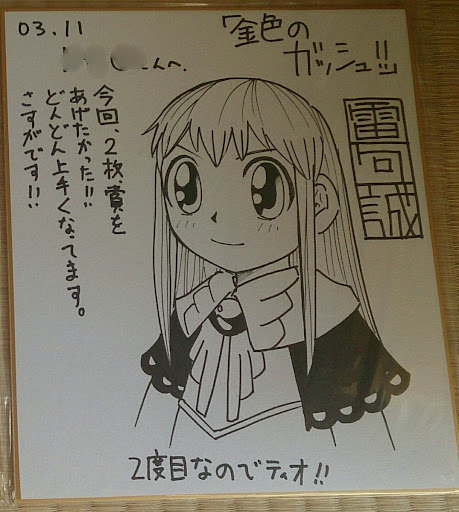 03.11
んへ
「金色の
ガッシュ!!」
雷句誠
今回、2枚、賞を
あげたかった!!
どんどん上手くなってます。
さすがです!!
2度目なのでティオ!!